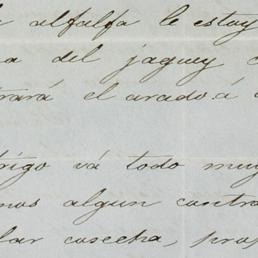 alfalfa le estoy
a del jaguey
trará el arado á
rigo vá todo muy
mos algun contra
lar cosecha, prop